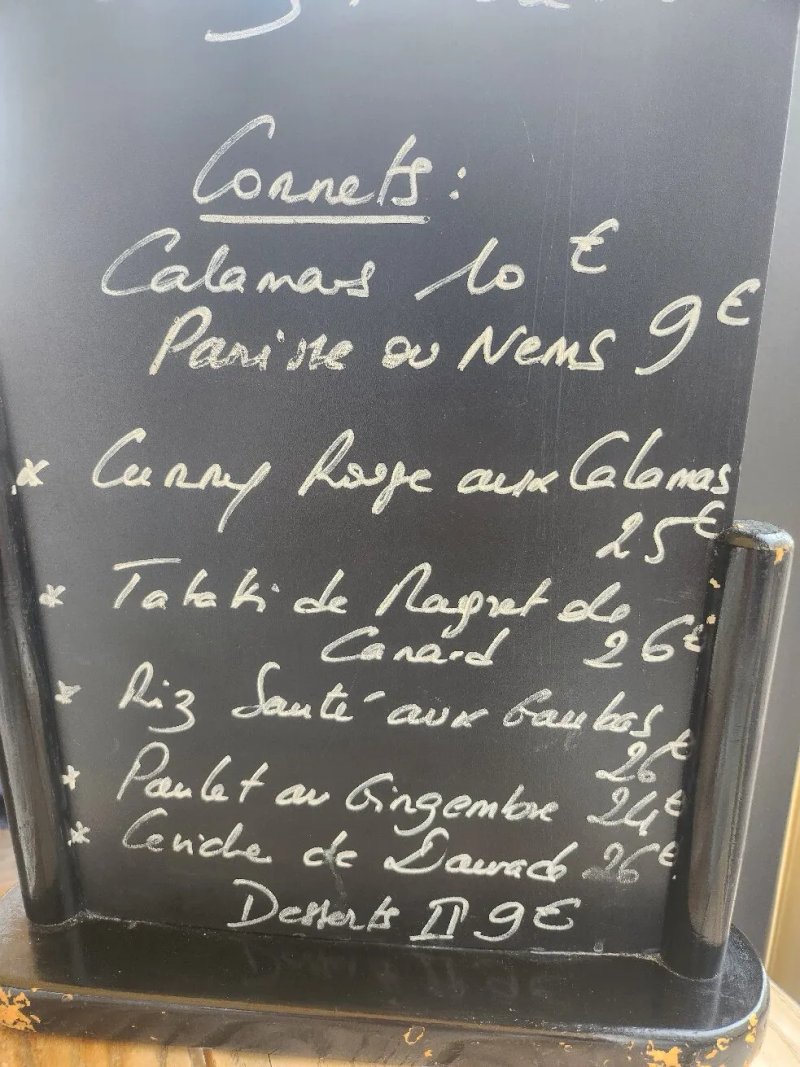 Cornets :
Calamars 10 €
Panisse ou Nems 9 €
* Curry Rouge aux Calamars
25 €
* Tataki de Magret de
Canard 26 €
* Riz Sauté aux Gambas
26 €
* Poulet au Gingembre 24 €
* Ceviche de Daurade 26 €
Desserts 9 €